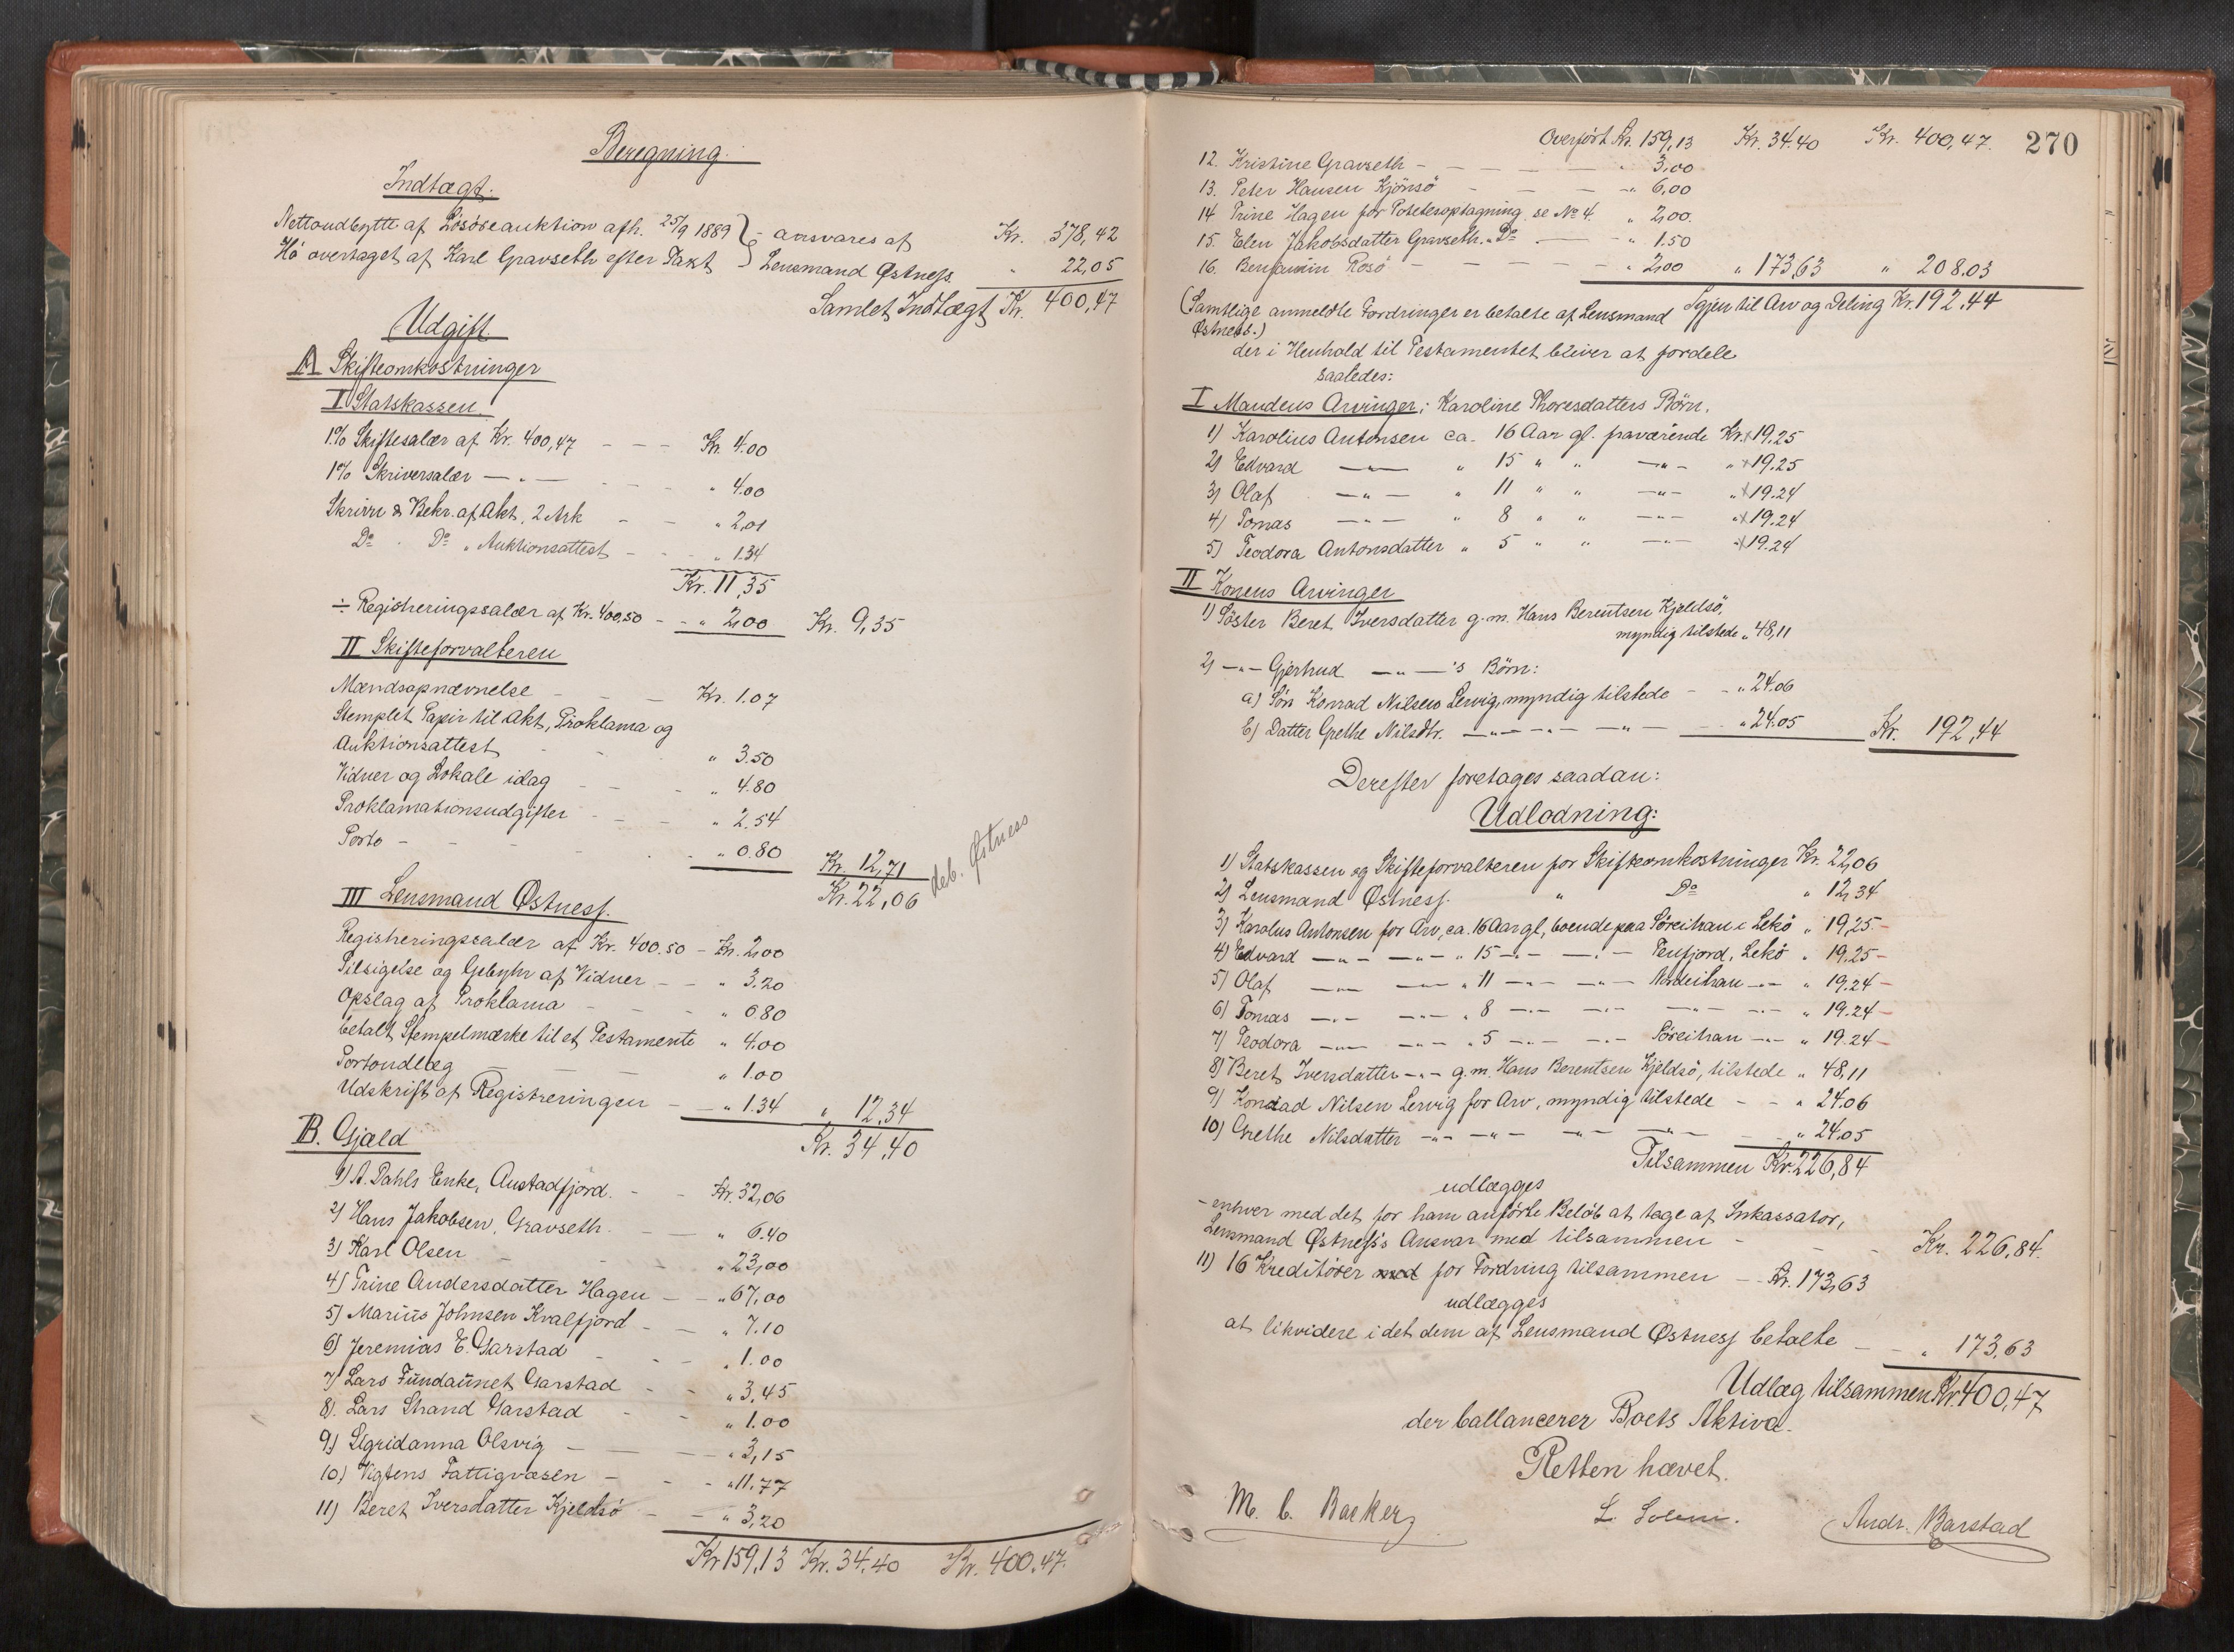 Beregning.
Indtægt.
Nettoudbytte af Løsøreauktion afh. 25/9 1889 } - ansvares af Kr. 378,42
Hø overtaget af Karl Gravseth efter Takt } Lensmand Østness. " 22,05
Samlet Indtægt Kr. 400,47
Udgift.
A Skifteomkostninger
I Statskassen
1% Skiftesalær af Kr. 400,47 - - - Kr. 4.00
1% Skriversalær — " — - - - " 4.00
Skrivn & Bekr. af Akt, 2 Ark - - " 2,01
Do Do " Auktionsattest - - - " 1.34
Kr. 11,35
÷ Registreringssalær af Kr. 400,50 - - " 2,00 Kr. 9,35
II Skifteforvalteren
Mændsopnævnelse - - - Kr. 1.07
Stemplet Papir til Akt, Proklama og
Auktionsattest - - " 3.50
Vidner og Lokale idag - - - " 4.80
Proklamationsudgifter - - " 2.54
Porto - - - - - " 0.80 Kr. 12,71
Kr. 22,06 deb. Østness
III Lensmand Østness.
Registreringssalær af Kr. 400.50 - Kr. 2,00
Tilsigelse og Gebyhr af Vidner - - " 3.20
Opslag af Proklama - - - " 0.80
betalt Stempelmærke til et Testamente " 4.00
Portoudlæg - - - " 1.00
Udskrift af Registreringen - - " 1.34 " 12,34
Kr. 34,40
B. Gjæld
1) A. Dahls Enke, Austadfjord. - - Kr. 32,06
2) Hans Jakobsen, Gravseth. - - " 6.40
3) Karl Olsen - - - " 23,00
4) Trine Andersdatter Hagen - - " 67,00
5) Marius Johnsen Kvalfjord - - " 7.10
6) Jeremias E. Garstad - - - " 1.00
7) Lars Fundaunet Garstad - - " 3,45
8). Lars Strand Garstad - - " 1.00
9.) Sigridanna Olsvig - - - " 3,15
10.) Vigtens Fattigvæsen - - - " 11.77
11) Beret Iversdatter Kjeldsø - - " 3,20
Kr 159,13 Kr. 34.40 Kr. 400.47.
Overført Kr. 159,13 Kr. 34.40 Kr. 400,47. 270
12. Kristine Gravseth - - - - - " 3,00
13. Peter Hansen Kjönsö - - - - " 6,00
14 Trine Hagen for Potetesoptagning se No 4. " 2,00.
15. Elen Jakobsdatter Gravseth. " Do - - " 1.50
16. Benjamin Rosö - - - - - " 2,00 " 173,63 " 208.03
Igjen til Arv og Deling Kr. 192.44
(Samtlige anmeldte Fordringer er betalte af Lensmand
Østness.)
der i Henhold til Testamentet bliver at fordele
saaledes:
I Mandens Arvinger; Karoline Thoresdatters Børn.
1) Karolius Antonsen ca. 16 Aar gl. fraværende Kr. x 19,25
2) Edvard — " — " 15 " " — " — " x 19.25
3) Olaf — " — " 11 " " — " — " x 19.24
4) Tomas — " — " 8 " " — " — " x 19.24
5) Teodora Antonsdatter " 5 " " — " — " x 19.24
II Konens Arvinger
1) Søster Beret Iversdatter g. m. Hans Berentsen Kjeldsö,
myndig tilstede " 48,11
2) — " — Gjertrud — " — 's Børn:
a) Søn Konrad Nilsen Lervig, myndig tilstede - - " 24.06
b) Datter Grethe Nilsdtr. — " — — " — — " — - - " 24.05 Kr. 192,44
Derefter foretages saadan:
Udlodning:
1) Statskassen og Skifteforvalteren for Skifteomkostninger Kr. 22,06
2) Lensmand Østness. " Do " 12,34
3) Karolus Antonsen for Arv, ca. 16 Aar gl, boende paa Söreihan i Lekö " 19,25 -
4) Edvard — " — — " — " 15 — " — — " — Tenfjord, Lekö " 19,25 -
5) Olaf — " — — " — " 11 — " — — " — Nordeihan — " — " 19.24 -
6) Tomas — " — — " — " 8 — " — — " — — " — — " — " 19.24 -
7) Teodora — " — — " — " 5 — " — — " — Söreihan — " — " 19.24 -
8) Beret Iversdatter — " — g. m. Hans Berentsen Kjeldsö, tilstede " 48,11
9) Konrad Nilsen Lervig for Arv, myndig tilstede - - " 24.06
10) Grethe Nilsdatter — " — — " — — " — — " — - " 24,05
Tilsammen Kr. 226,84
udlægges
- enhver med det for ham anførte Beløb at tage af Inkassator,
Lensmand Østness's Ansvar med tilsammen - - - Kr. 226,84.
11) 16 Kreditorer med for Fordring tilsammen - Kr. 173,63
udlægges
at likvidere i det dem af Lensmand Østness betalte - - " 173,63
Udlæg tilsammen Kr 400,47
der ballancerer Boets Aktiva.
Retten hævet.
M. C. Backer L. Solem. Andr. Garstad